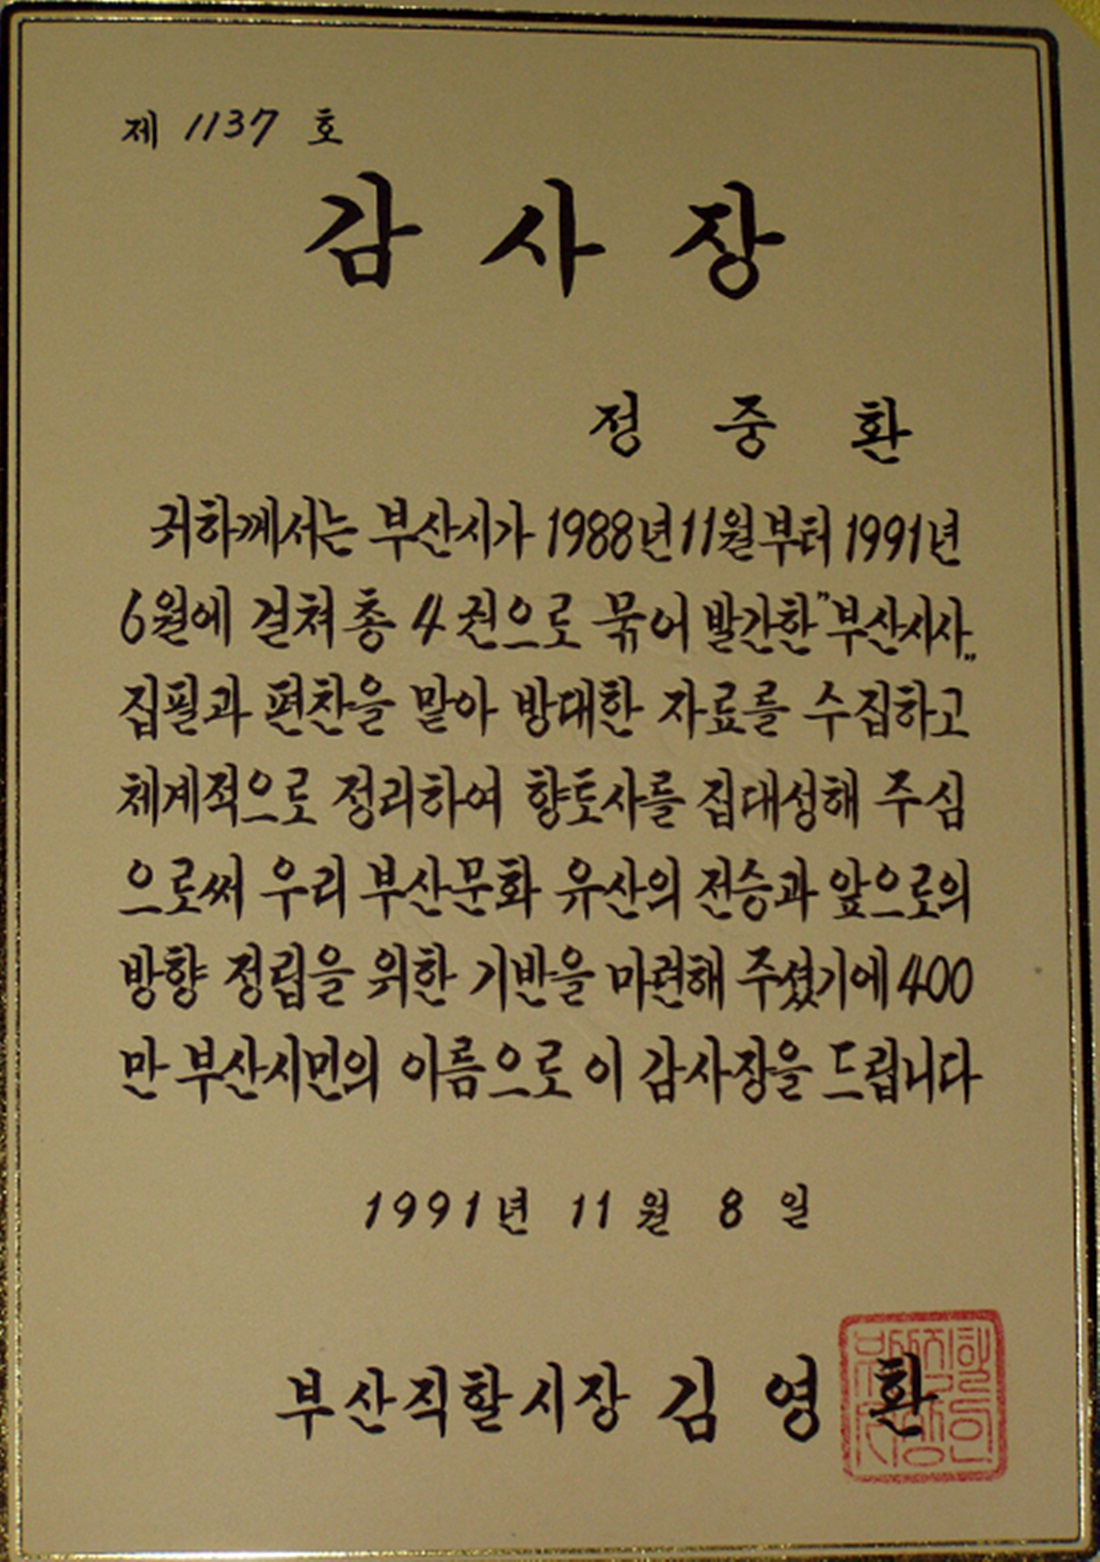 제 1137 호
감 사 장
정 중 환
귀하께서는 부산시가 1988년 11월부터 1991년
6월에 걸쳐 총 4권으로 묶어 발간한 "부산시사"
집필과 편찬을 맡아 방대한 자료를 수집하고
체계적으로 정리하여 향토사를 집대성해 주심
으로써 우리 부산문화 유산의 전승과 앞으로의
방향 정립을 위한 기반을 마련해 주셨기에 400
만 부산시민의 이름으로 이 감사장을 드립니다
1991년 11월 8일
부산직할시장 김 영 환